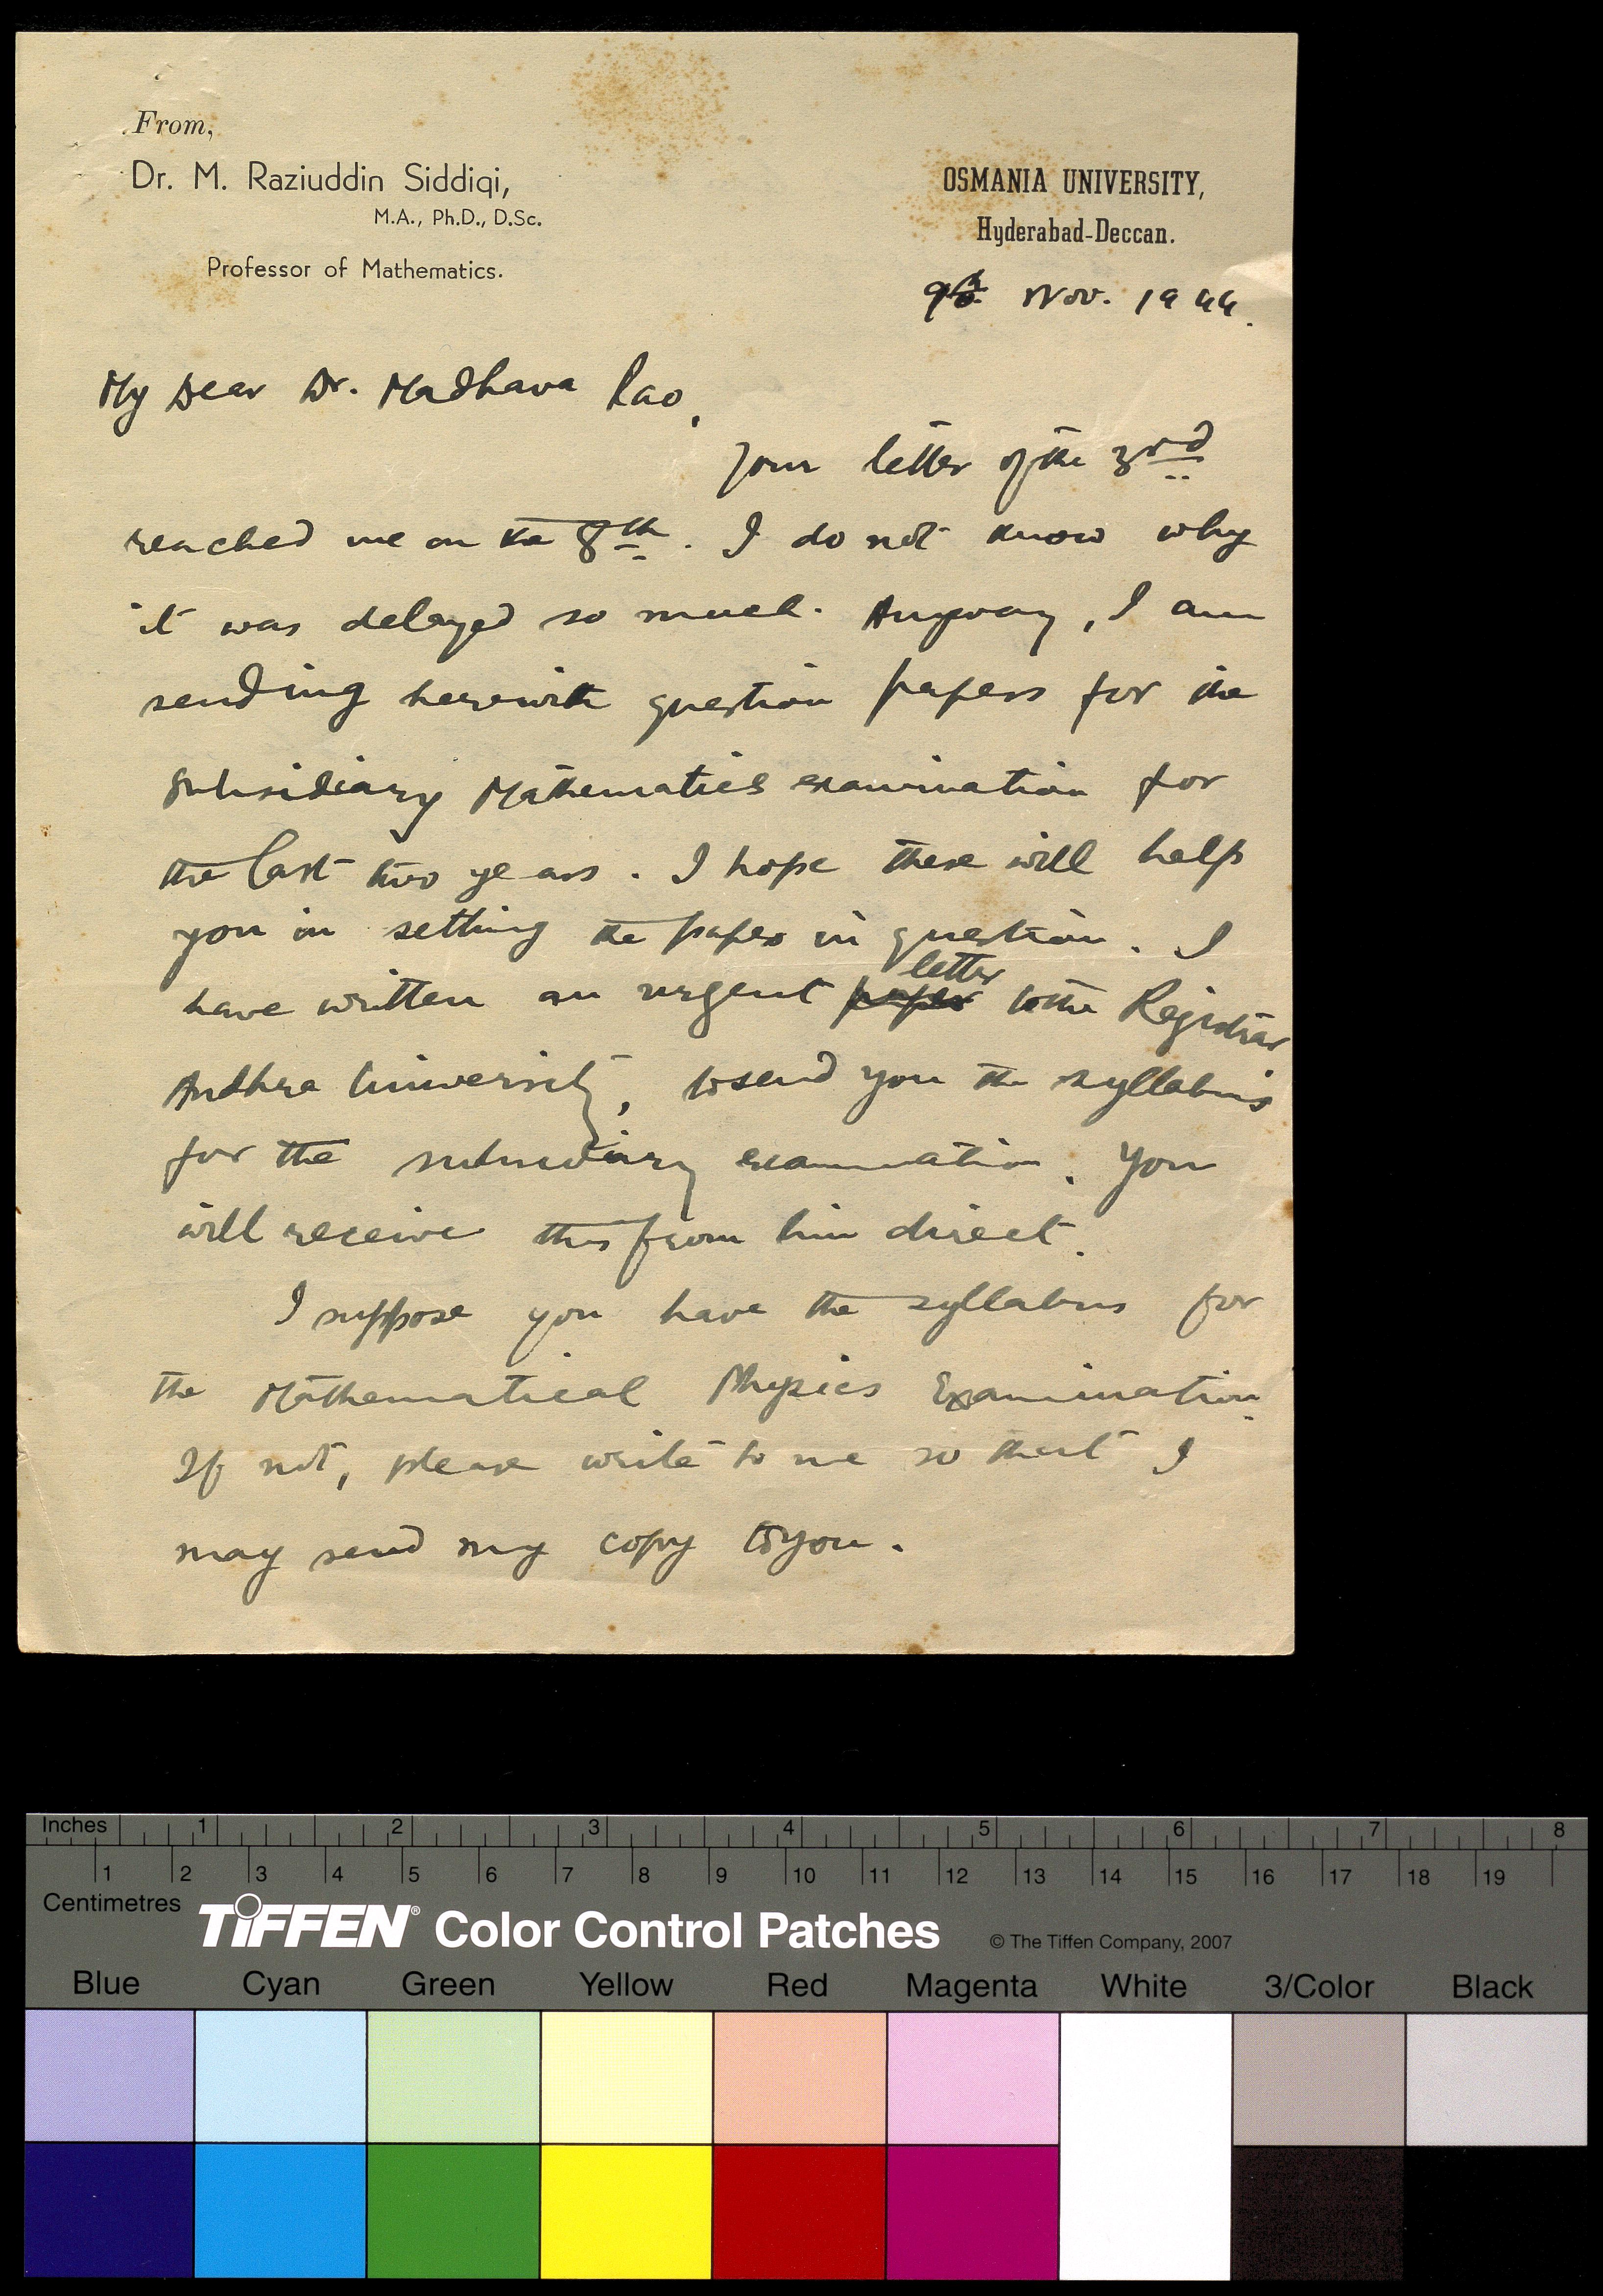 From,
Dr. M. Raziuddin Siddiqi,
M.A., Ph.D., D.Sc.
Professor of Mathematics.
OSMANIA UNIVERSITY,
Hyderabad-Deccan.
9th Nov. 1944.
My Dear Dr. Madhava Rao,
Your letter of the 3rd
reached me on the 8th. I do not know why
it was delayed so much. Anyway, I am
sending herewith question papers for the
Subsidiary Mathematics examination for
the last two years. I hope these will help
you in setting the paper in question. I
letter
have written an urgent paper to the Registrar
Andhra University, to send you the syllabus
for the subsidiary examination. You
will receive this from him direct.
I suppose you have the syllabus for
the Mathematical Physics Examination.
If not, please write to me so that I
may send my copy to you.
Inches 1 2 3 4 5 6 7 8
1 2 3 4 5 6 7 8 9 10 11 12 13 14 15 16 17 18 19
Centimetres
TIFFEN® Color Control Patches © The Tiffen Company, 2007
Blue Cyan Green Yellow Red Magenta White 3/Color Black